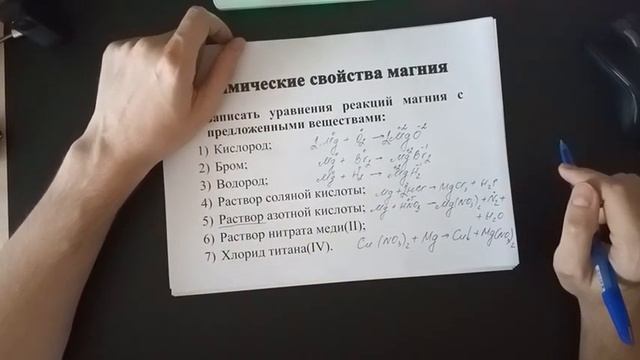 имические свойства магния
аписать уравнения реакций магния с
предложенными веществами:
1) Кислород; 2Mg + O₂ → 2MgO
2) Бром; Mg + Br₂ → MgBr₂
3) Водород; Mg + H₂ → MgH₂
4) Раствор соляной кислоты; Mg + 2HCl → MgCl₂ + H₂↑
5) Раствор азотной кислоты; Mg + HNO₃ → Mg(NO₃)₂ + N₂ +
+ H₂O
6) Раствор нитрата меди(II);
7) Хлорид титана(IV). Cu(NO₃)₂ + Mg → Cu↓ + Mg(NO₃)₂